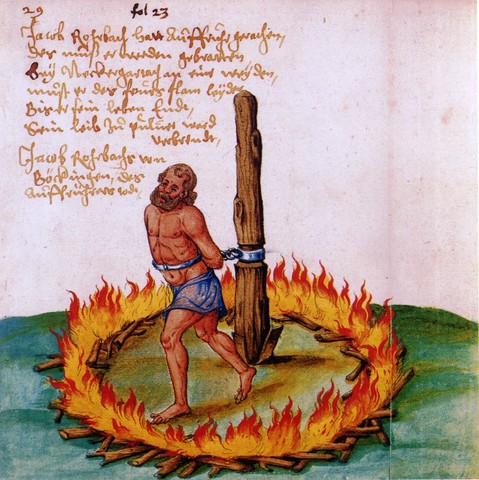 29 fol 23
Jacob Rohrbach hatt Auffruhr gerathen,
der muß er werden gebratten,
Bey Neckergartach an eine weyden,
must er des feurs flam leyden
Bis er sein leben Endt,
Sein leib zu puluer ward
verbrendt,
Jacob Rohrbachs von
Böckingen, des
Auffrührers todt,